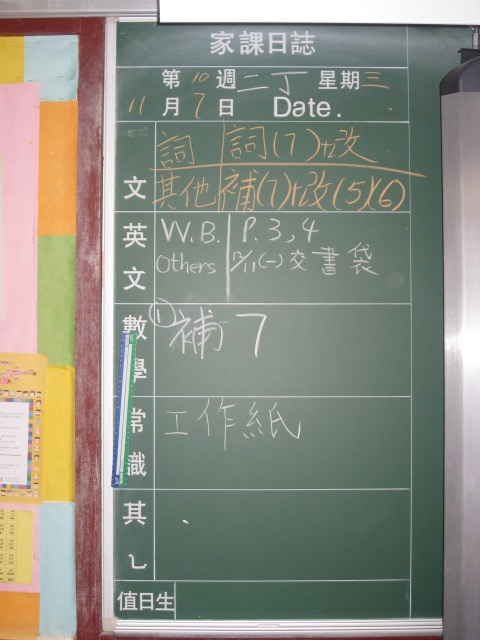 家課日誌
第10週二丁星期三
11月7日 Date.
文
詞 詞(7)+改
其他 補(7)+改(5)(6)
英文
W.B. P.3,4
Others 12/11(一)交書袋
數學
① 補7
常識
工作紙
其
值日生